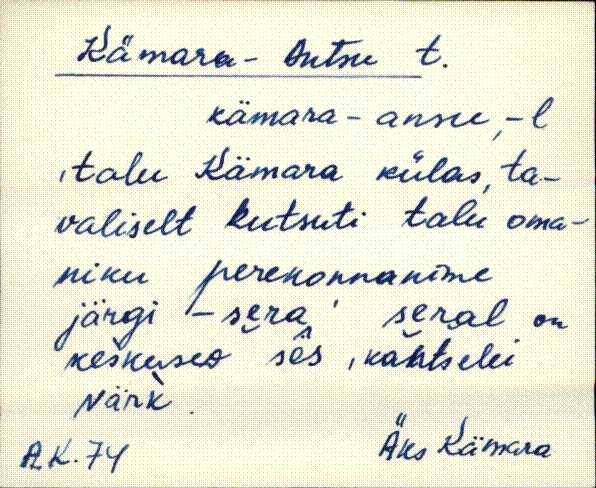 Kämara-Antsu t.
kämara-ansu, -l
'talu Kämara külas, ta-
valiselt kutsuti talu oma-
niku perekonnanime
järgi - sera' seral on
keskuses
värk
A.K. 74
Äks Kämara